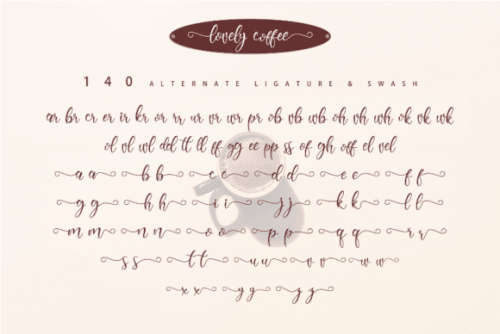 lovely coffee
140 ALTERNATE LIGATURE & SWASH
ar br cr er ir kr or rr ur vr wr pr ob vb wb oh vh wh ok vk wk
ol vl wl dd tt ll ff gg ee pp ss of gh off el vel
a a b b c c d d e e f f
g g h h i i j j k k l l
m m n n o o p p q q r r
s s t t u u v v w w
x x y y z z